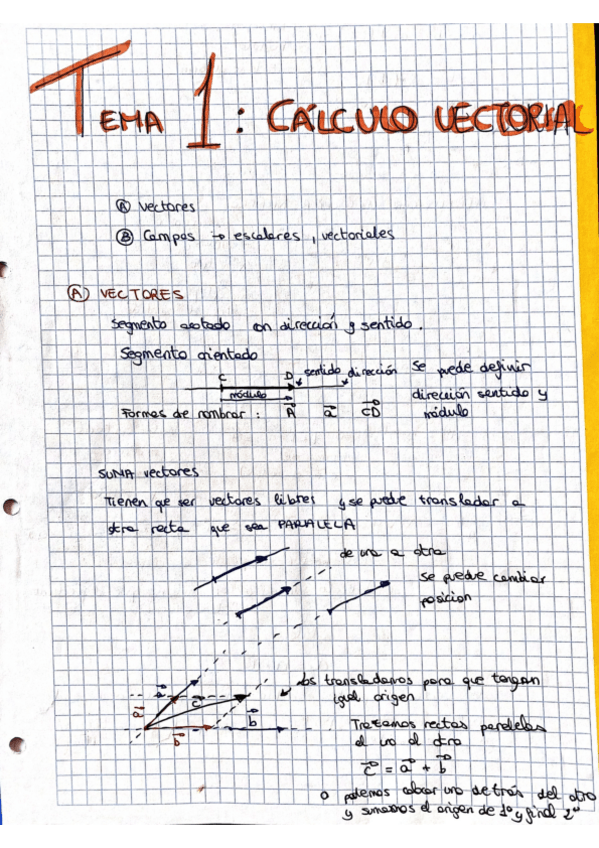 TEMA 1: CÁLCULO VECTORIAL
Ⓐ Vectores
Ⓑ Campos → escalares, vectoriales
Ⓐ VECTORES
Segmento acotado con dirección y sentido.
Segmento orientado
C D sentido dirección Se puede definir
módulo dirección sentido y
Formas de nombrar: A⃗ a⃗ CD⃗ módulo
SUMA vectores
Tienen qe ser vectores libres y se puede transladar a
otra recta que sea PARALELA
de una a otra
Se puede cambiar
posicion
los transladamos para que tengan
igual origen
a⃗ c⃗
a⃗ b⃗ b⃗
Trazamos rectas paralelas
el uno al otro
c⃗ = a⃗ + b⃗
o podemos colocar uno detrás del otro
y sumamos el origen de 1º y final 2º